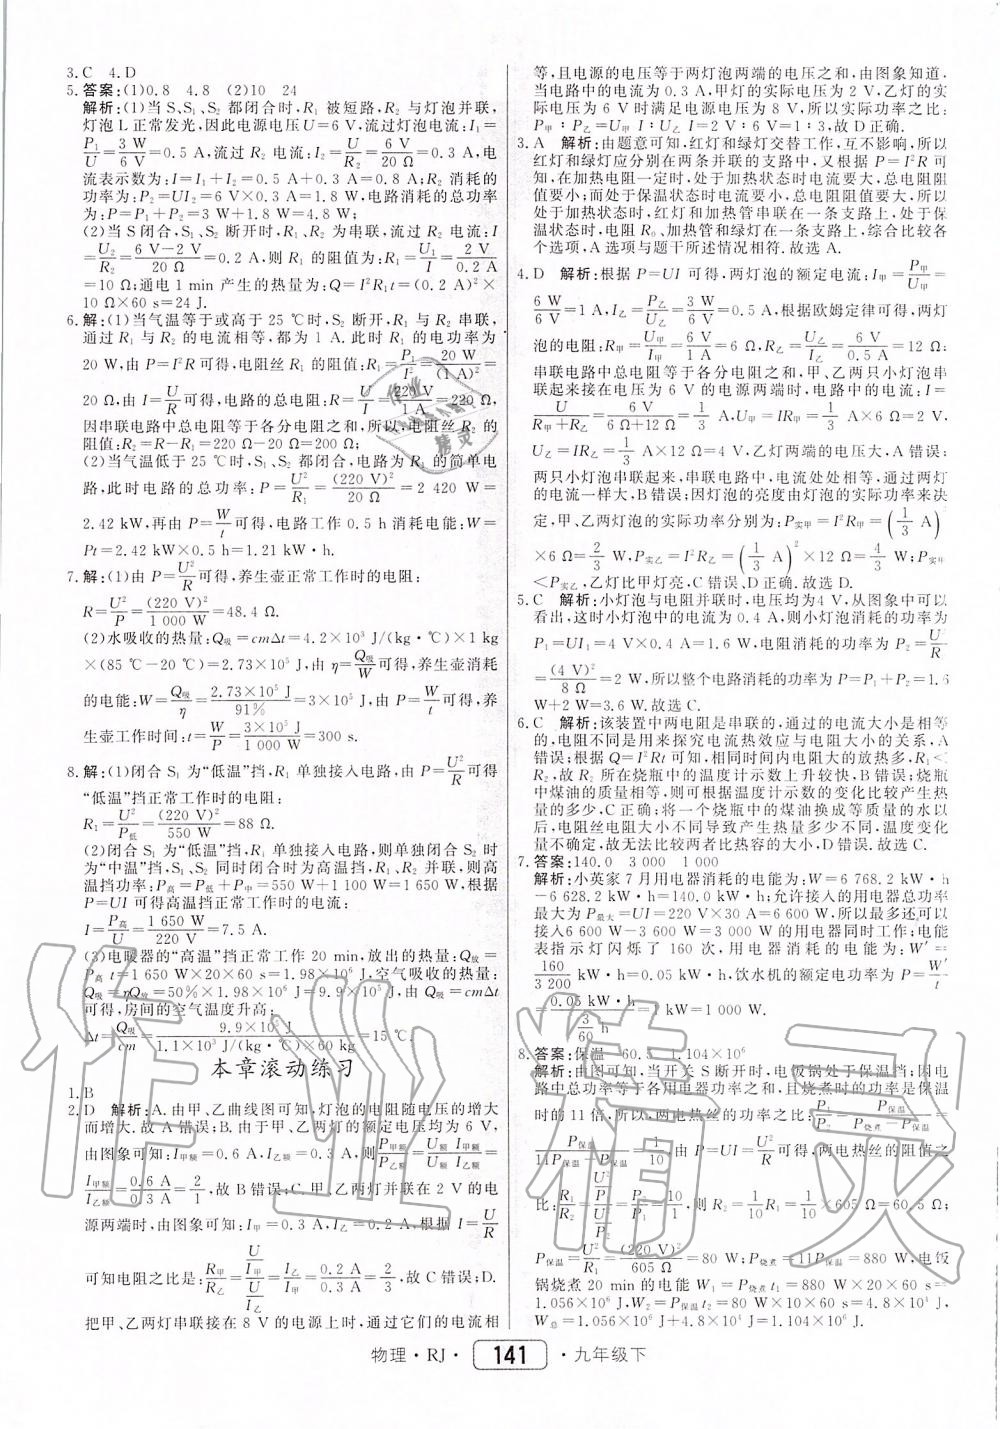 3.C　4.D
5.答案:(1)0.8　4.8　(2)10　24
解析:(1)当 S、S₁、S₂ 都闭合时,R₁ 被短路,R₂ 与灯泡并联,
灯泡 L 正常发光,因此电源电压U=6 V,流过灯泡电流:I₁=
P₁/U=3 W/6 V=0.5 A,流过 R₂ 电流:I₂=U/R₂=6 V/20 Ω=0.3 A,电
流表示数为:I=I₁+I₂=0.5 A+0.3 A=0.8 A,R₂ 消耗的
功率为:P₂=UI₂=6 V×0.3 A=1.8 W,电路消耗的总功率
为:P=P₁+P₂=3 W+1.8 W=4.8 W;
(2)当 S 闭合,S₁、S₂ 断开时,R₁ 与 R₂ 为串联,流过 R₂ 电流:I
=U₂/R₂=(6 V-2 V)/20 Ω=0.2 A,则 R₁ 的阻值为:R₁=U₁/I=2 V/0.2 A
=10 Ω;通电 1 min 产生的热量为:Q=I²R₁t=(0.2 A)²×
10 Ω×60 s=24 J.
6.解:(1)当气温等于或高于 25 ℃时,S₂ 断开,R₁ 与 R₂ 串联,
通过 R₁ 与 R₂ 的电流相等,都为 1 A.此时 R₁ 的电功率为
20 W,由 P=I²R 可得,电阻丝 R₁ 的阻值:R₁=P₁/I²=20 W/(1 A)²=
20 Ω,由 I=U/R可得,电路的总电阻:R=U/I=220 V/1 A=220 Ω,
因串联电路中总电阻等于各分电阻之和,所以,电阻丝 R₂ 的
阻值:R₂=R-R₁=220 Ω-20 Ω=200 Ω;
(2)当气温低于 25 ℃时,S₁、S₂ 都闭合,电路为R₁ 的简单电
路,此时电路的总功率:P=U²/R₁=(220 V)²/20 Ω=2 420 W=
2.42 kW,再由 P=W/t可得,电路工作 0.5 h 消耗电能:W=
Pt=2.42 kW×0.5 h=1.21 kW·h.
7.解:(1)由 P=U²/R可得,养生壶正常工作时的电阻:
R=U²/P=(220 V)²/1 000 W=48.4 Ω.
(2)水吸收的热量:Q吸=cmΔt=4.2×10³ J/(kg·℃)×1 kg
×(85 ℃-20 ℃)=2.73×10⁵ J,由 η=Q吸/W可得,养生壶消耗
的电能:W=Q吸/η=2.73×10⁵ J/91%=3×10⁵ J,由 P=W/t可得,养
生壶工作时间:t=W/P=3×10⁵ J/1 000 W=300 s.
8.解:(1)闭合 S₁ 为“低温”挡,R₁ 单独接入电路,由 P=U²/R可得
“低温”挡正常工作时的电阻:
R₁=U²/P低=(220 V)²/550 W=88 Ω.
(2)闭合 S₁ 为“低温”挡,R₁ 单独接入电路,则单独闭合 S₂ 时
为“中温”挡,S₁、S₂ 同时闭合时为高温挡,R₁、R₂ 并联,则高
温挡功率:P高=P低+P中=550 W+1 100 W=1 650 W,根据
P=UI 可得高温挡正常工作时的电流:
I=P高/U=1 650 W/220 V=7.5 A.
(3)电暖器的“高温”挡正常工作 20 min,放出的热量:Q放=
P高t=1 650 W×20×60 s=1.98×10⁶ J,空气吸收的热量:
Q吸=ηQ放=50%×1.98×10⁶ J=9.9×10⁵ J,由 Q吸=cmΔt
可得,房间的空气温度升高:
Δt=Q吸/cm=9.9×10⁵ J/(1.1×10³ J/(kg·℃)×60 kg)=15 ℃.
本章滚动练习
1.B
2.D　解析:A.由甲、乙曲线图可知,灯泡的电阻随电压的增大
而增大.故 A 错误;B.由于甲、乙两灯的额定电压均为 6 V,
由图象可知:I甲额=0.6 A,I乙额=0.3 A,P甲额/P乙额=U额I甲额/U额I乙额=
I甲额/I乙额=0.6 A/0.3 A=2/1,故 B 错误;C.甲、乙两灯并联在 2 V 的电
源两端时,由图象可知:I甲=0.3 A,I乙=0.2 A,根据 I=U/R
可知电阻之比是:R甲/R乙=(U/I甲)/(U/I乙)=I乙/I甲=0.2 A/0.3 A=2/3,故 C 错误;D.
把甲、乙两灯串联接在 8 V 的电源上时,通过它们的电流相
等,且电源的电压等于两灯泡两端的电压之和,由图象知道,
当电路中的电流为 0.3 A,甲灯的实际电压为 2 V,乙灯的实
际电压为 6 V 时满足电源电压为 8 V,所以实际功率之比:
P甲∶P乙=U甲 I∶U乙 I=2 V∶6 V=1∶3,故 D 正确.
3.A　解析:由题意可知,红灯和绿灯交替工作,互不影响,所以
红灯和绿灯应分别在两条并联的支路中,又根据 P=I²R 可
知,在加热电阻一定时,处于加热状态时电流要大,总电阻阻
值要小;而处于保温状态时,总电阻阻值要大、电流要小.所以
处于加热状态时,红灯和加热管串联在一条支路上,处于保
温状态时,电阻 R₀、加热管和绿灯在一条支路上,综合比较各
个选项,A 选项与题干所述情况相符.故选 A.
4.D　解析:根据 P=UI 可得,两灯泡的额定电流:I甲=P甲/U甲=
6 W/6 V=1 A,I乙=P乙/U乙=3 W/6 V=0.5 A,根据欧姆定律可得,两灯
泡的电阻:R甲=U甲/I甲=6 V/1 A=6 Ω,R乙=U乙/I乙=6 V/0.5 A=12 Ω;
串联电路中总电阻等于各分电阻之和,甲、乙两只小灯泡串
联起来接在电压为 6 V 的电源两端时,电路中的电流:I=
U/(R甲+R乙)=6 V/(6 Ω+12 Ω)=1/3 A,U甲=IR甲=1/3 A×6 Ω=2 V,
U乙=IR乙=1/3 A×12 Ω=4 V,乙灯两端的电压大,A 错误;
两只小灯泡串联起来,串联电路中,电流处处相等,所以两灯
的电流一样大,B 错误;因灯泡的亮度由灯泡的实际功率来决
定,甲、乙两灯泡的实际功率分别为:P实甲=I²R甲=(1/3 A)²
×6 Ω=2/3 W,P实乙=I²R乙=(1/3 A)²×12 Ω=4/3 W;P实甲
<P实乙,乙灯比甲灯亮,C 错误、D 正确.故选 D.
5.C　解析:小灯泡与电阻并联时,电压均为4 V,从图象中可以
看出,这时小灯泡中的电流为 0.4 A,则小灯泡消耗的功率为
P₁=UI₁=4 V×0.4 A=1.6 W,电阻消耗的功率为 P₂=U²/R
=(4 V)²/8 Ω=2 W,所以整个电路消耗的功率为 P=P₁+P₂=1.6
W+2 W=3.6 W.故选 C.
6.C　解析:该装置中两电阻是串联的,通过的电流大小是相等
的,电阻不同是用来探究电流热效应与电阻大小的关系,A
错误;根据 Q=I²Rt 可知,相同时间内电阻大的放热多,R₁<
R₂,故 R₂ 所在烧瓶中的温度计示数上升较快,B 错误;烧瓶
中煤油的质量相等,则可根据温度计示数的变化比较产生热
量的多少,C 正确;将一个烧瓶中的煤油换成等质量的水以
后,电阻丝电阻大小不同导致产生热量多少不同,温度变化
量不确定,故无法比较两者比热容的大小,D 错误.故选 C.
7.答案:140.0　3 000　1 000
解析:小英家 7 月用电器消耗的电能为:W=6 768.2 kW·h
-6 628.2 kW·h=140.0 kW·h;允许接入的用电器总功率
最大为 P最大=UI=220 V×30 A=6 600 W,所以最多还可以
接入6 600 W-3 600 W=3 000 W的用电器同时工作;电能
表指示灯闪烁了 160 次,用电器消耗的电能为:W′=
160/3 200 kW·h=0.05 kW·h,饮水机的额定电功率为 P=W′/t
=0.05 kW·h/(3/60 h)=1 kW=1 000 W.
8.答案:保温　60.5　1.104×10⁶
解析:由图可知,当开关 S 断开时,电饭锅处于保温挡;因电
路中总功率等于各用电器功率之和,且烧煮时的功率是保温
时的 11 倍,所以,两电热丝的功率之比:P₁/P₂=P保温/(P烧煮-P保温)=
P保温/(11P保温-P保温)=1/10,由 P=UI=U²/R可得,两电热丝的阻值之
比:R₁/R₂=(U²/P₁)/(U²/P₂)=P₂/P₁=10/1,则 R₂=1/10R₁=1/10×605 Ω=60.5 Ω;
P保温=U²/R₁=(220 V)²/605 Ω=80 W;P烧煮=11P保温=880 W,电饭
锅烧煮 20 min 的电能 W₁=P烧煮 t₁=880 W×20×60 s=
1.056×10⁶ J,W₂=P保温 t₂=80 W×10×60 s=4.8×10⁴ J,
W总=1.056×10⁶ J+4.8×10⁴ J=1.104×10⁶ J.
物理·RJ·　141　·九年级下
作业精灵